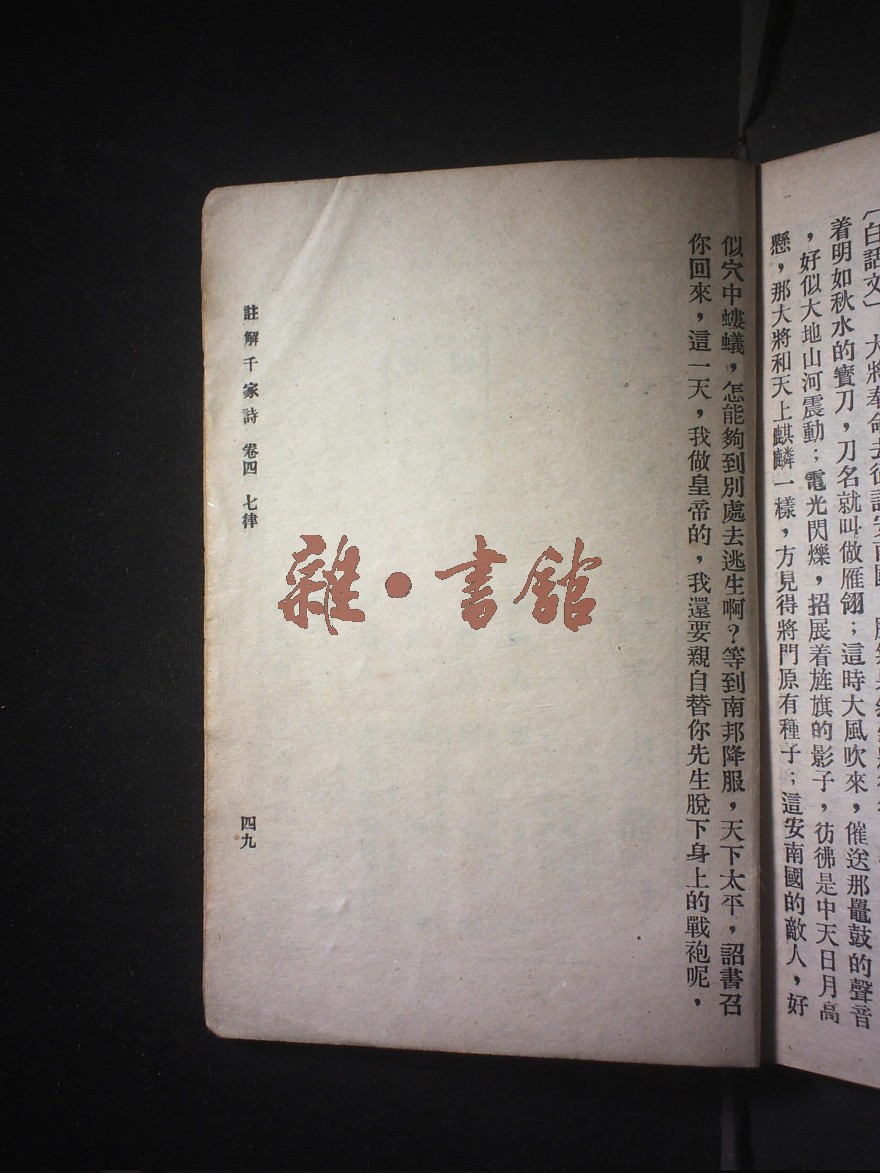 〔白話文〕 大將奉命去征討安南國
着明如秋水的寶刀，刀名就叫做雁翎；這時大風吹來，催送那鼉鼓的聲音
，好似大地山河震動；電光閃爍，招展着旌旗的影子，彷彿是中天日月高
懸，那大將和天上麒麟一樣，方見得將門原有種子；這安南國的敵人，好
似穴中螻蟻，怎能夠到別處去逃生啊？等到南邦降服，天下太平，詔書召
你回來，這一天，我做皇帝的，我還要親自替你先生脫下身上的戰袍呢，
註解千家詩 卷四 七律
四九
雜·書館